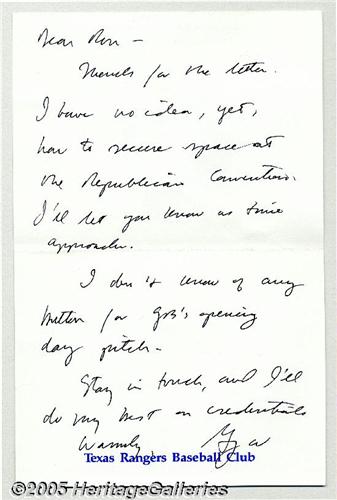 Dear Ron -
Thanks for the letter.
I have no idea, yet,
how to secure space at
the Republican Convention.
I'll let you know as time
approaches.
I don't know of any
button for GB's opening
day pitch -
Stay in touch, and I'll
do my best on credentials
Warmly,
Texas Rangers Baseball Club
©2005 HeritageGalleries